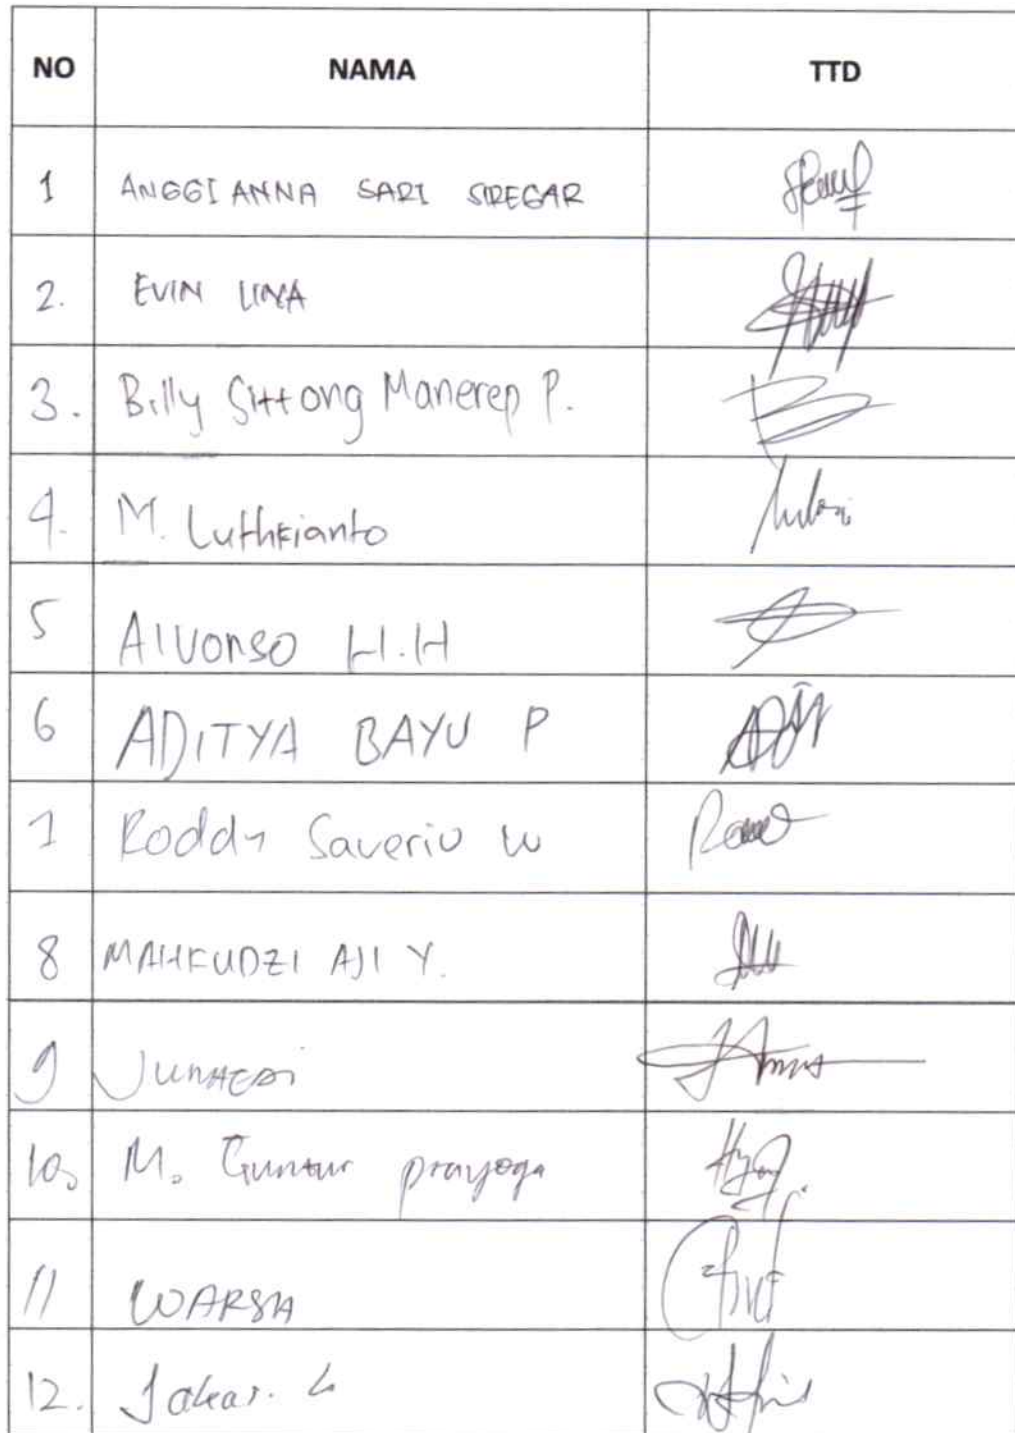 NO NAMA TTD
1 ANGGIANNA SARI SIREGAR
2. EVIN LINA
3. Billy Sittong Manerep P.
4. M. Luthfianto
5 Alvonso H.H
6 ADITYA BAYU P
7 Roddy Saverio W
8 MAHFUDZI AJI Y.
9 Junaedi
10. M. Guntur prayoga
11 WARSIA
12.